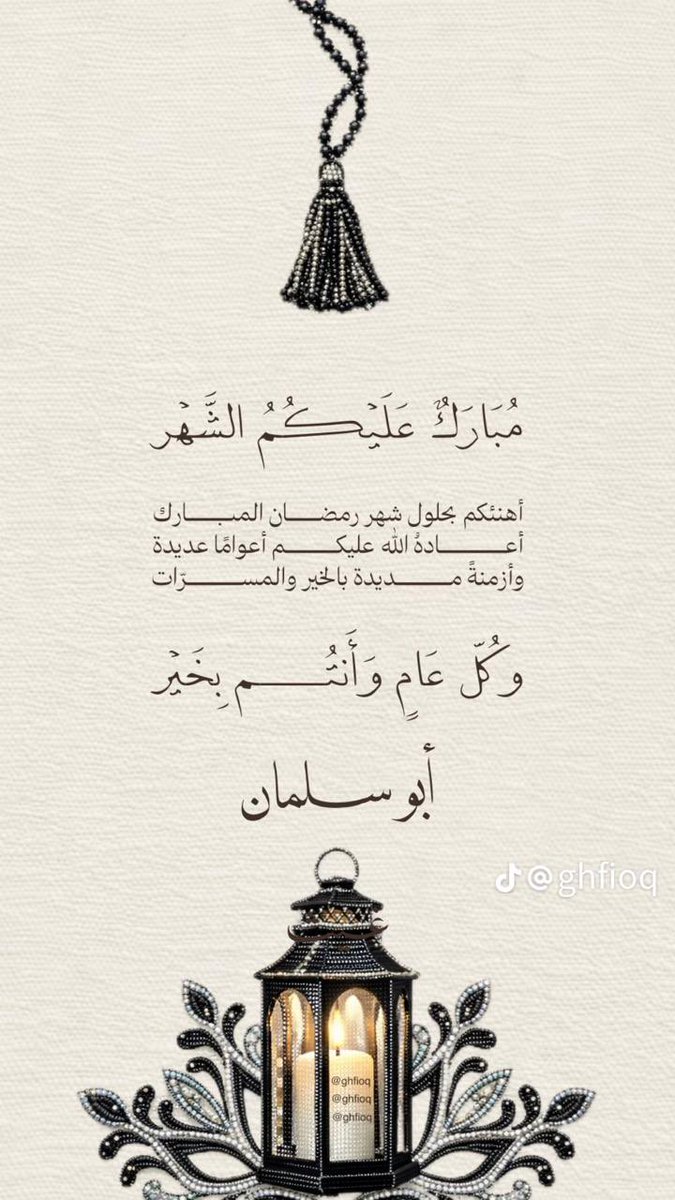 مُبَارَكٌ عَلَيْكُمُ الشَّهْر
أهنئكم بحلول شهر رمضـــان المبـــارك
أعـــــادهُ الله عليكـــــم أعوامًا عديدة
وأزمنةً مـــــديدة بالخير والمســـــرّات
وَكُلّ عَامٍ وَأَنتُـــــم بِخَيْر
أبو سلمان
@ghfioq
@ghfioq
@ghfioq
@ghfioq